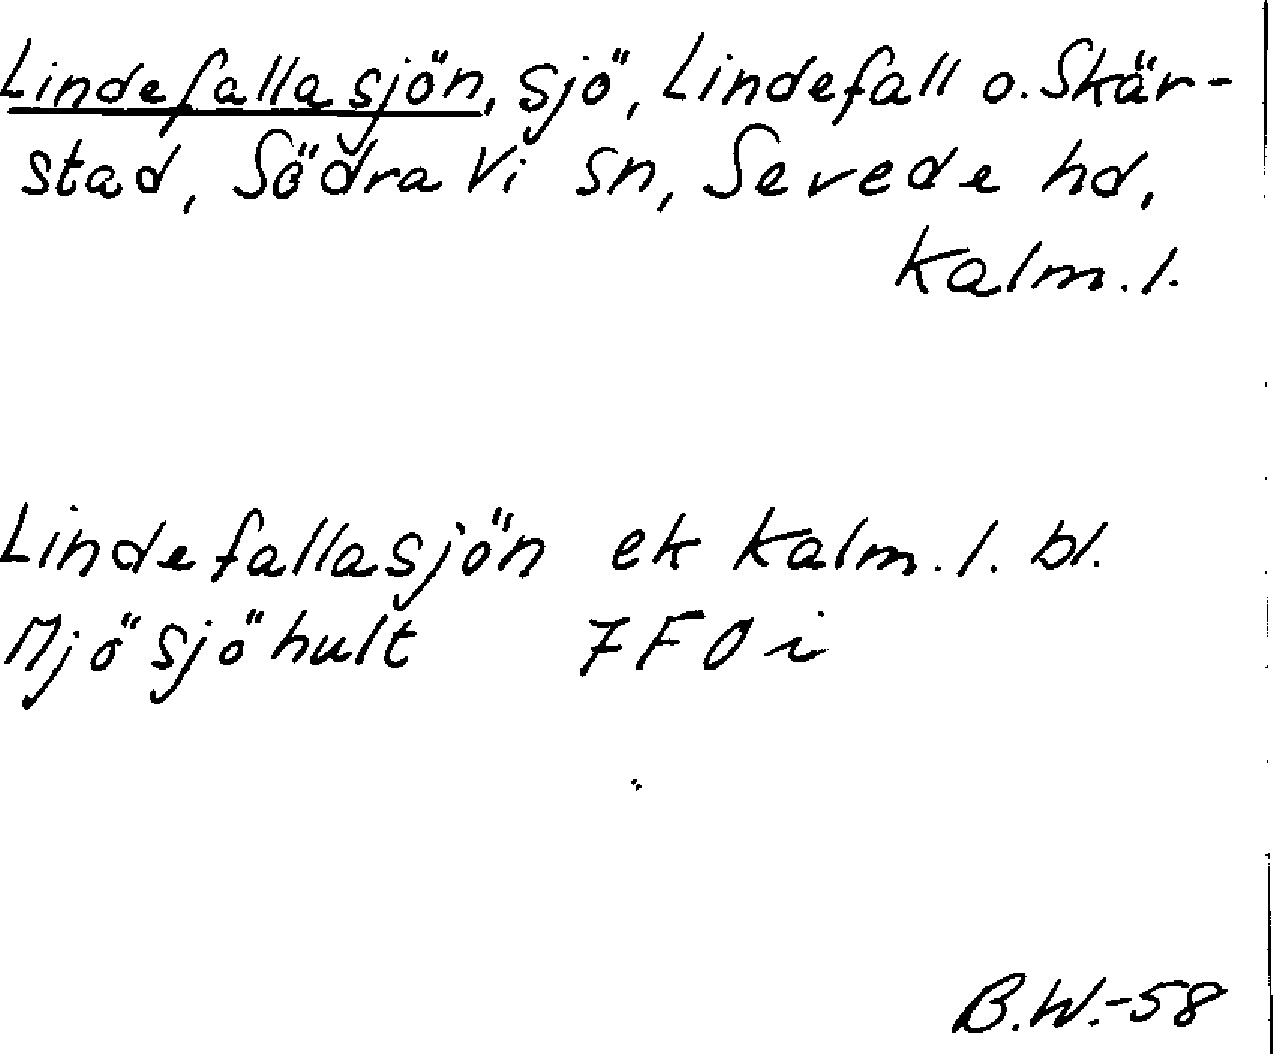 Lindefallasjön, sjö, Lindefall o. Skär-
stad, Södra Vi sn, Sevede hd,
Kalm. l.
Lindefallasjön ek Kalm. l. bl.
Mjösjöhult 7F0i
B.W.-58